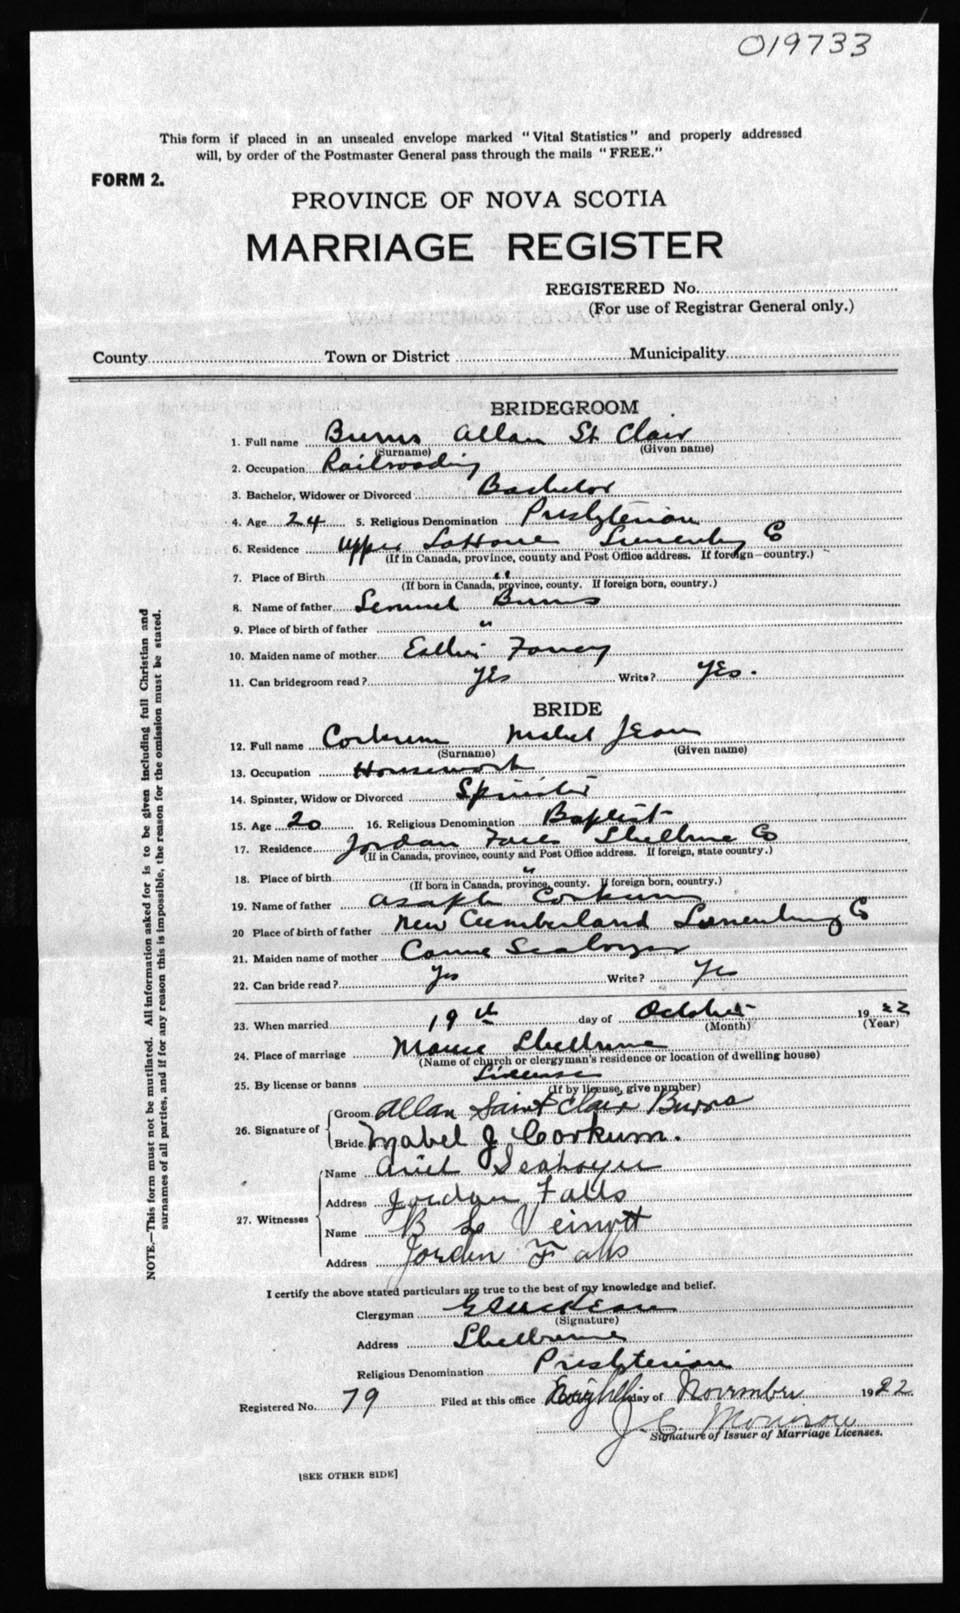 019733
This form if placed in an unsealed envelope marked "Vital Statistics" and properly addressed
will, by order of the Postmaster General pass through the mails "FREE."
FORM 2.
PROVINCE OF NOVA SCOTIA
MARRIAGE REGISTER
REGISTERED No.
(For use of Registrar General only.)
County Town or District Municipality
BRIDEGROOM
1. Full name Burns Allan St Clair
(Surname) (Given name)
2. Occupation Railroading
3. Bachelor, Widower or Divorced Bachelor
4. Age 24 5. Religious Denomination Presbyterian
6. Residence Upper LaHave Lunenburg Co
(If in Canada, province, county and Post Office address. If foreign—country.)
7. Place of Birth " "
(If born in Canada, province, county. If foreign born, country.)
8. Name of father Lemuel Burns
9. Place of birth of father "
10. Maiden name of mother
11. Can bridegroom read? Yes Write? Yes.
BRIDE
12. Full name Corkum Mabel Jean
(Surname) (Given name)
13. Occupation Housework
14. Spinster, Widow or Divorced Spinster
15. Age 20 16. Religious Denomination Baptist
17. Residence Jordan Falls Shelburne Co
(If in Canada, province, county and Post Office address. If foreign, state country.)
18. Place of birth "
(If born in Canada, province, county. If foreign born, country.)
19. Name of father Asaph Corkum
20 Place of birth of father New Cumberland Lunenburg Co
21. Maiden name of mother
22. Can bride read? Yes Write? Yes
23. When married 19th day of October 1922
(Month) (Year)
24. Place of marriage Manse Shelburne
(Name of church or clergyman's residence or location of dwelling house)
25. By license or banns License
(If by license, give number)
26. Signature of Groom Allan Saint Clair Burns
Bride Mabel J Corkum.
27. Witnesses Name
Address Jordan Falls
Name B L Veinott
Address Jordan Falls
I certify the above stated particulars are true to the best of my knowledge and belief.
Clergyman
(Signature)
Address Shelburne
Religious Denomination Presbyterian
Registered No. 79 Filed at this office Eighth day of November 1922.
J. C. Morrison
Signature of Issuer of Marriage Licenses.
[SEE OTHER SIDE]
NOTE.—This form must not be mutilated. All information asked for is to be given including full Christian and
surnames of all parties, and if for any reason this is impossible, the reason for the omission must be stated.